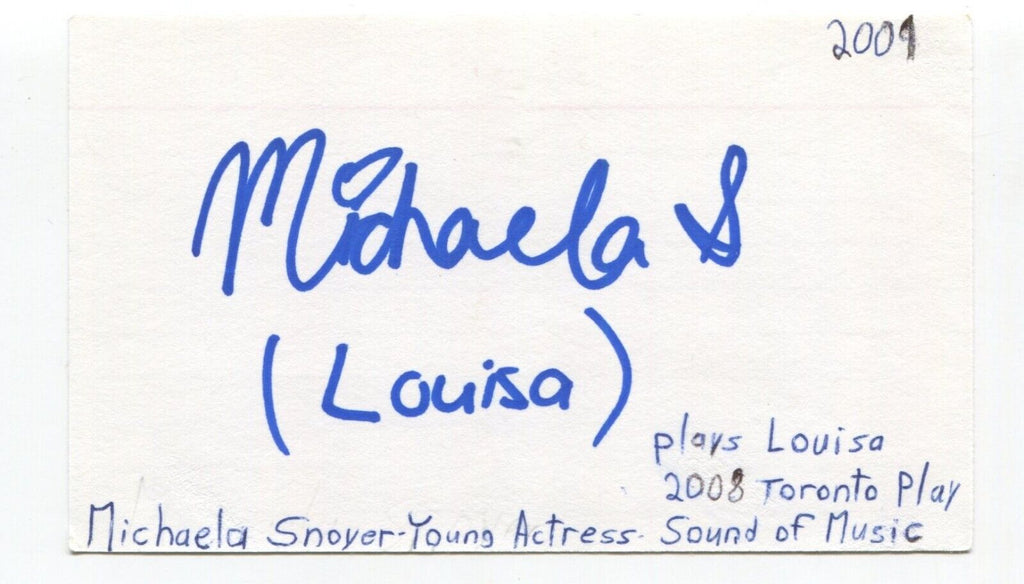 2009
Michaela S
(Louisa)
plays Louisa
2008 Toronto Play
Michaela Snoyer-Young Actress- Sound of Music